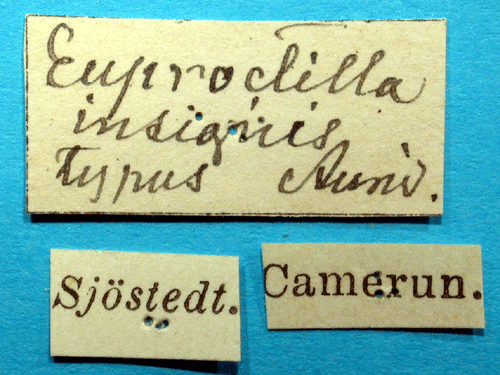 Euproctilla
insignis
typus Auriv.
Sjöstedt.
Camerun.